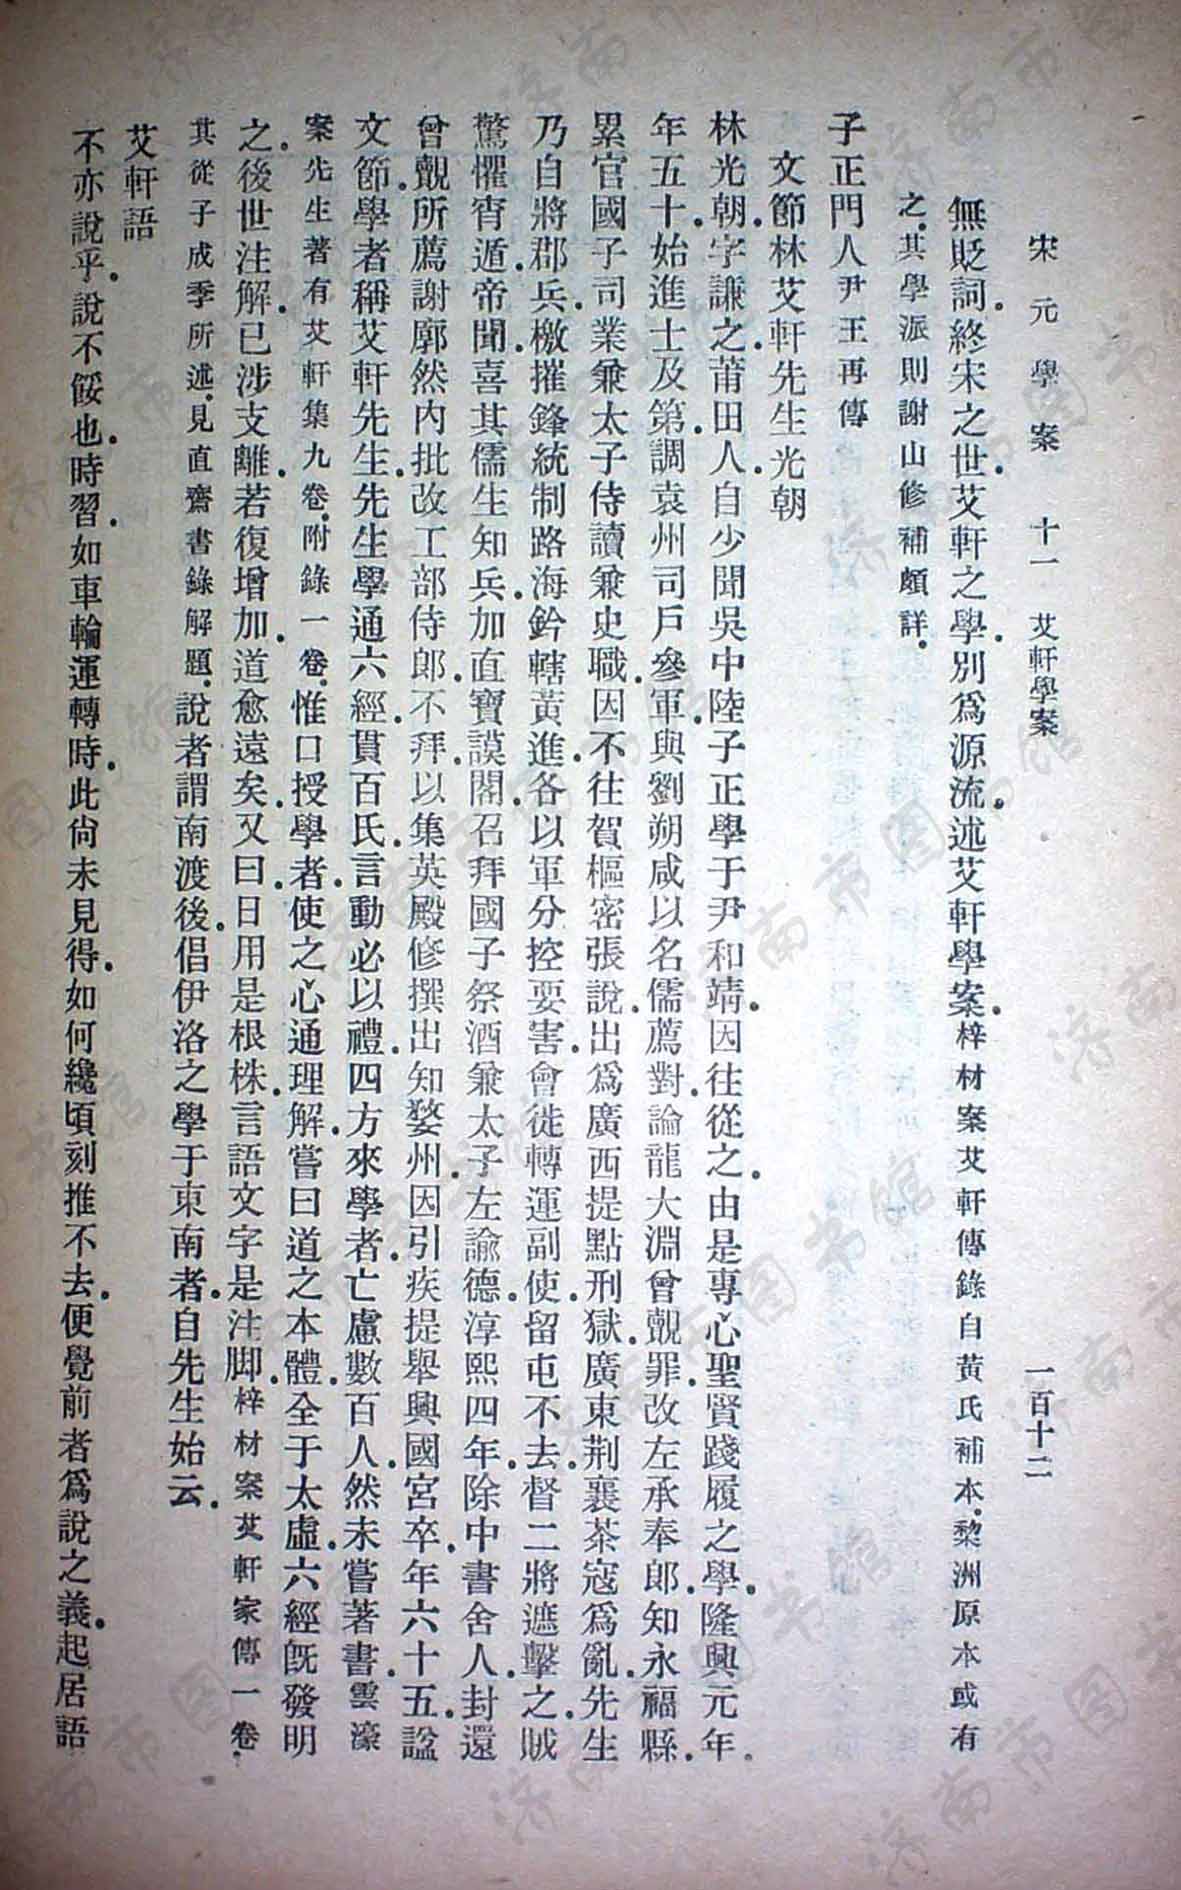 宋元學案 十一 艾軒學案 一百十二
無貶詞．終宋之世．艾軒之學．別爲源流．述艾軒學案．梓材案艾軒傳錄自黃氏補本．黎洲原本或有
之．其學派則謝山修補頗詳．
子正門人尹王再傳
文節林艾軒先生光朝
林光朝．字謙之．莆田人．自少聞吳中陸子正學于尹和靖．因往從之．由是專心聖賢踐履之學．隆興元年．
年五十．始進士及第．調袁州司戶參軍．與劉朔咸以名儒薦對．論龍大淵曾覿罪．改左承奉郎．知永福縣．
累官國子司業兼太子侍讀兼史職．因不往賀樞密張說．出爲廣西提點刑獄．廣東荆襄茶寇爲亂．先生
乃自將郡兵．檄摧鋒統制路海．鈐轄黃進．各以軍分控要害．會徙轉運副使．留屯不去．督二將遮擊之．賊
驚懼宵遁．帝聞．喜其儒生知兵．加直寶謨閣．召拜國子祭酒兼太子左諭德．淳熙四年．除中書舍人．封還
曾覿所薦謝廓然內批．改工部侍郎．不拜．以集英殿修撰出知婺州．因引疾提舉興國宮．卒．年六十五．諡
文節．學者稱艾軒先生．先生學通六經．貫百氏．言動必以禮．四方來學者．亡慮數百人．然未嘗著書．雲濠
案先生著有艾軒集九卷．附錄一卷．惟口授學者．使之心通理解．嘗曰．道之本體．全于太虛．六經旣發明
之．後世注解．已涉支離．若復增加．道愈遠矣．又曰．日用是根株．言語文字是注脚．梓材案艾軒家傳一卷．
其從子成季所述．見直齋書錄解題．說者謂南渡後．倡伊洛之學于東南者．自先生始云．
艾軒語
不亦說乎．說不餒也．時習．如車輪運轉時．此尚未見得．如何纔頃刻推不去．便覺前者爲說之義．起居語